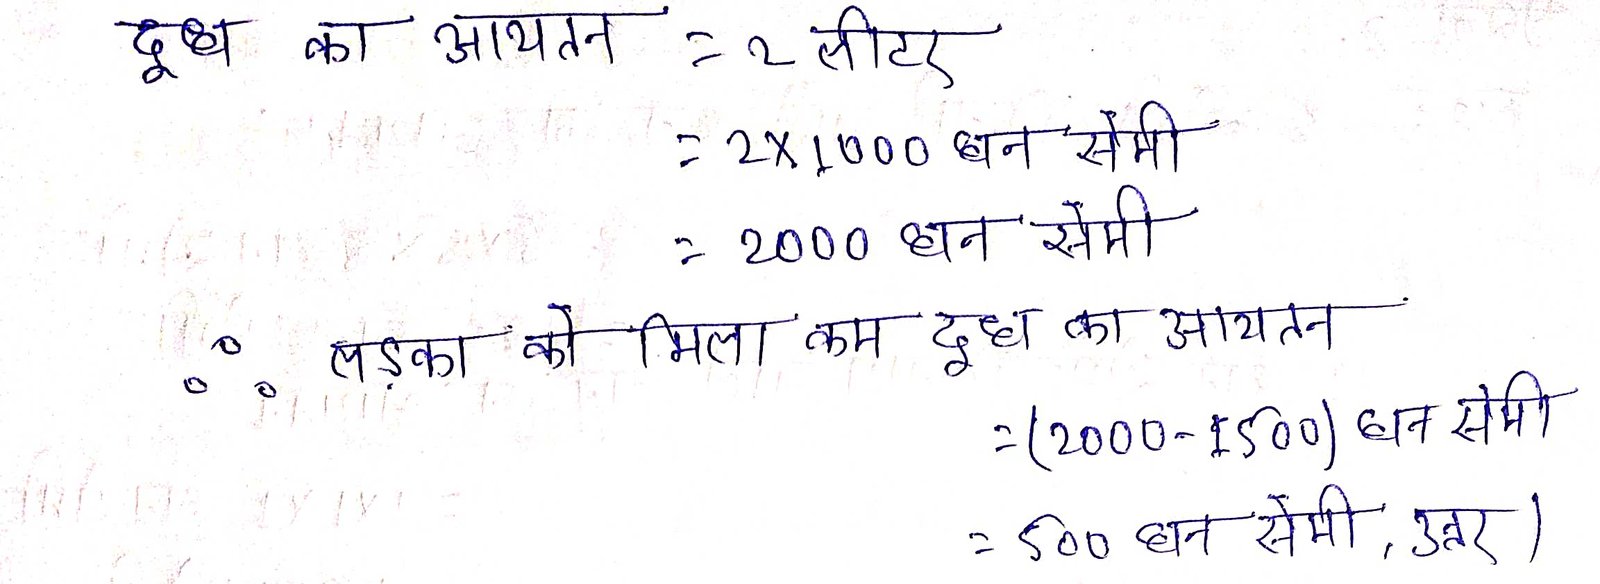 दूध का आयतन = 2 लीटर
= 2×1000 घन सेमी
= 2000 घन सेमी
∴ लड़का को मिला कम दूध का आयतन
= (2000-1500) घन सेमी
= 500 घन सेमी, उत्तर)